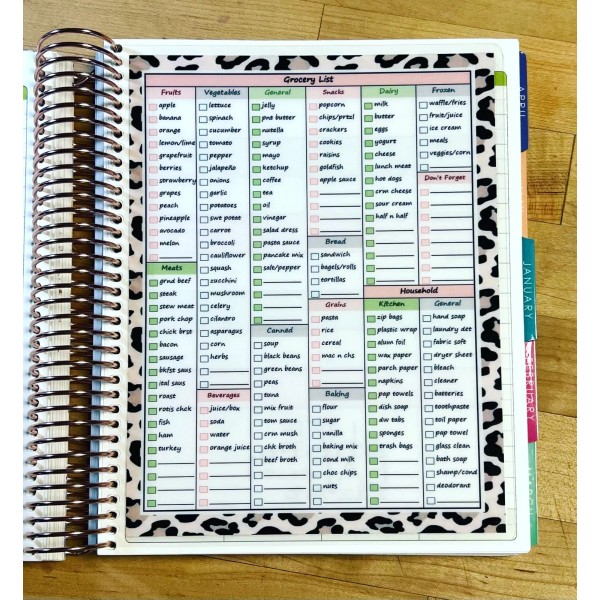 Grocery List
Fruits
apple
banana
orange
lemon/lime
grapefruit
berries
strawberry
grapes
peach
pineapple
avocado
melon
Meats
grnd beef
steak
stew meat
pork chop
chick brst
bacon
sausage
bkfst saus
ital saus
roast
rotis chck
fish
ham
turkey
Vegetables
lettuce
spinach
cucumber
tomato
pepper
jalapeño
onions
garlic
potatoes
swt potat
carrot
broccoli
cauliflower
squash
zucchini
mushroom
celery
cilantro
asparagus
corn
herbs
Beverages
juice/box
soda
water
orange juice
General
jelly
pnt butter
nutella
syrup
mayo
ketchup
coffee
tea
oil
vinegar
salad dress
pasta sauce
pancake mix
salt/pepper
Canned
soup
black beans
green beans
peas
tuna
mix fruit
tom sauce
crm mush
chk broth
bef broth
Snacks
popcorn
chips/prtzl
crackers
cookies
raisins
goldfish
apple sauce
Bread
sandwich
bagels/rolls
tortillas
Grains
pasta
rice
cereal
mac n chs
Baking
flour
sugar
vanilla
baking mix
cond milk
choc chips
nuts
Dairy
milk
butter
eggs
yogurt
cheese
lunch meat
hot dogs
crm cheese
sour cream
half n half
Frozen
waffle/fries
fruit/juice
ice cream
meals
veggies/corn
Don't Forget
Household
Kitchen
zip bags
plastic wrap
alum foil
wax paper
parch paper
napkins
pap towels
dish soap
dw tabs
sponges
trash bags
General
hand soap
laundry det
fabric soft
dryer sheet
bleach
cleaner
batteries
toothpaste
toil paper
pap towel
glass clean
bath soap
shamp/cond
deodorant
APRIL
JANUARY